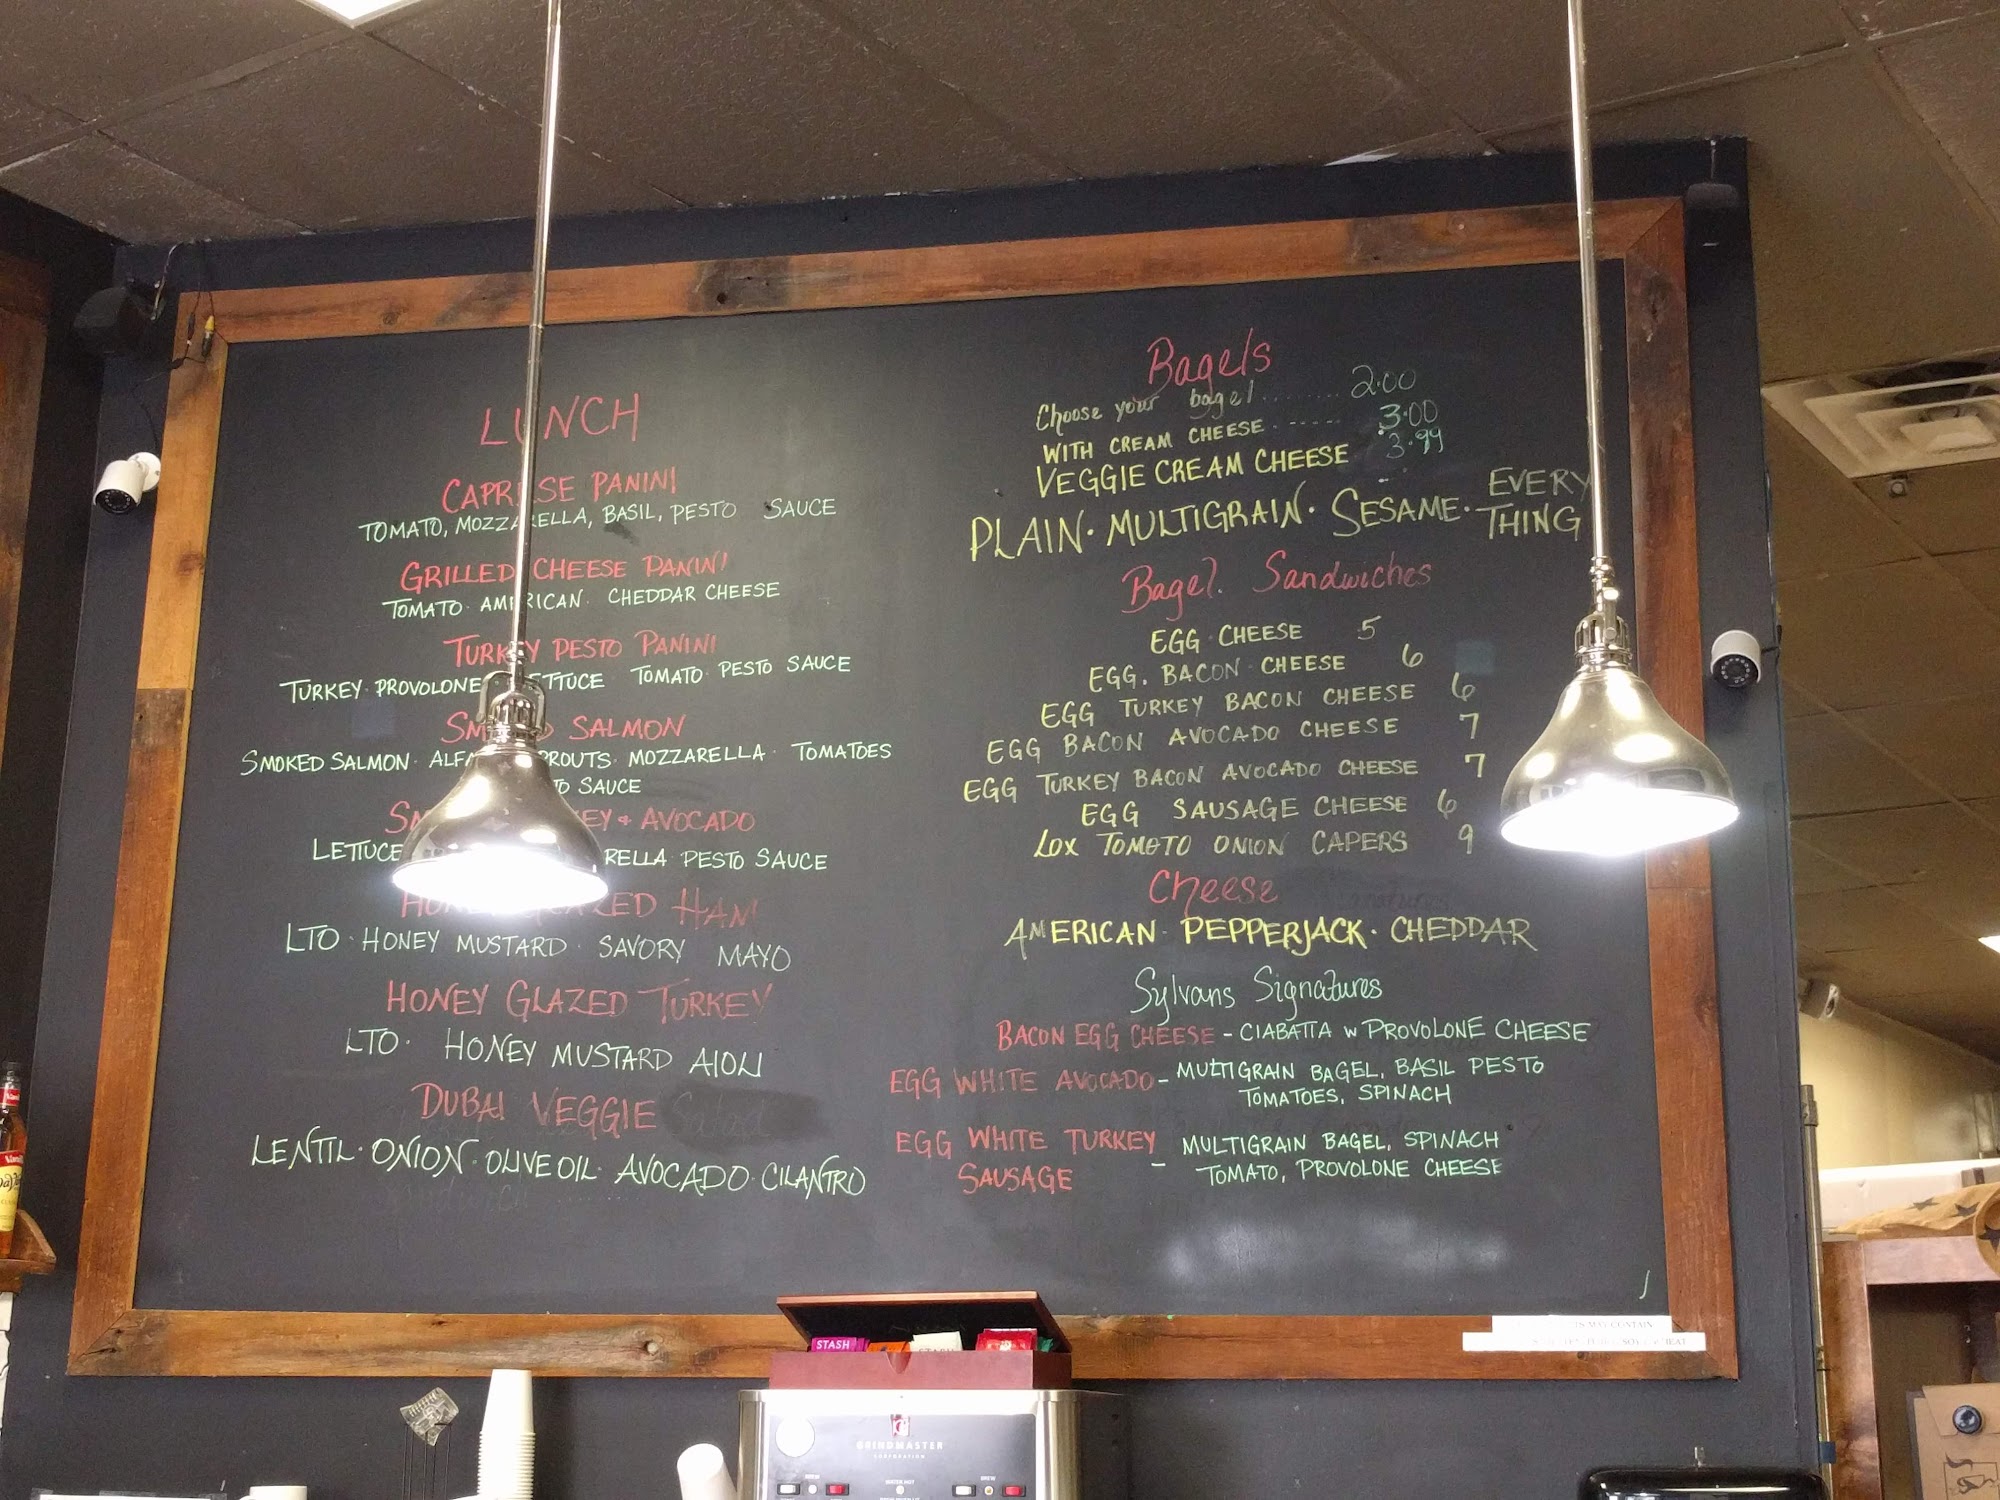 LUNCH
CAPRESE PANINI
TOMATO, MOZZARELLA, BASIL, PESTO SAUCE
GRILLED CHEESE PANINI
TOMATO · AMERICAN · CHEDDAR CHEESE
TURKEY PESTO PANINI
TURKEY · PROVOLONE · LETTUCE TOMATO PESTO SAUCE
SMOKED SALMON
SMOKED SALMON · SPROUTS · MOZZARELLA · TOMATOES
SAUCE
& AVOCADO
LETTUCE PESTO SAUCE
HONEY GLAZED HAM
LTO · HONEY MUSTARD · SAVORY MAYO
HONEY GLAZED TURKEY
LTO · HONEY MUSTARD AIOLI
DUBAI VEGGIE
LENTIL · ONION · OLIVE OIL · AVOCADO · CILANTRO
Bagels
Choose your bagel ........ 2.00
WITH CREAM CHEESE ------ 3.00
VEGGIE CREAM CHEESE 3.99
PLAIN · MULTIGRAIN · SESAME · EVERY
THING
Bagel Sandwiches
EGG · CHEESE 5
EGG · BACON · CHEESE 6
EGG TURKEY BACON CHEESE 6
EGG BACON AVOCADO CHEESE 7
EGG TURKEY BACON AVOCADO CHEESE 7
EGG SAUSAGE CHEESE 6
LOX TOMOTO ONION CAPERS 9
Cheese
AMERICAN · PEPPERJACK · CHEDDAR
Sylvans Signatures
BACON EGG CHEESE - CIABATTA W PROVOLONE CHEESE
EGG WHITE AVOCADO - MULTIGRAIN BAGEL, BASIL PESTO
TOMATOES, SPINACH
EGG WHITE TURKEY
SAUSAGE - MULTIGRAIN BAGEL, SPINACH
TOMATO, PROVOLONE CHEESE
MAY CONTAIN
STASH
GRINDMASTER
CORPORATION
BREW
BREW